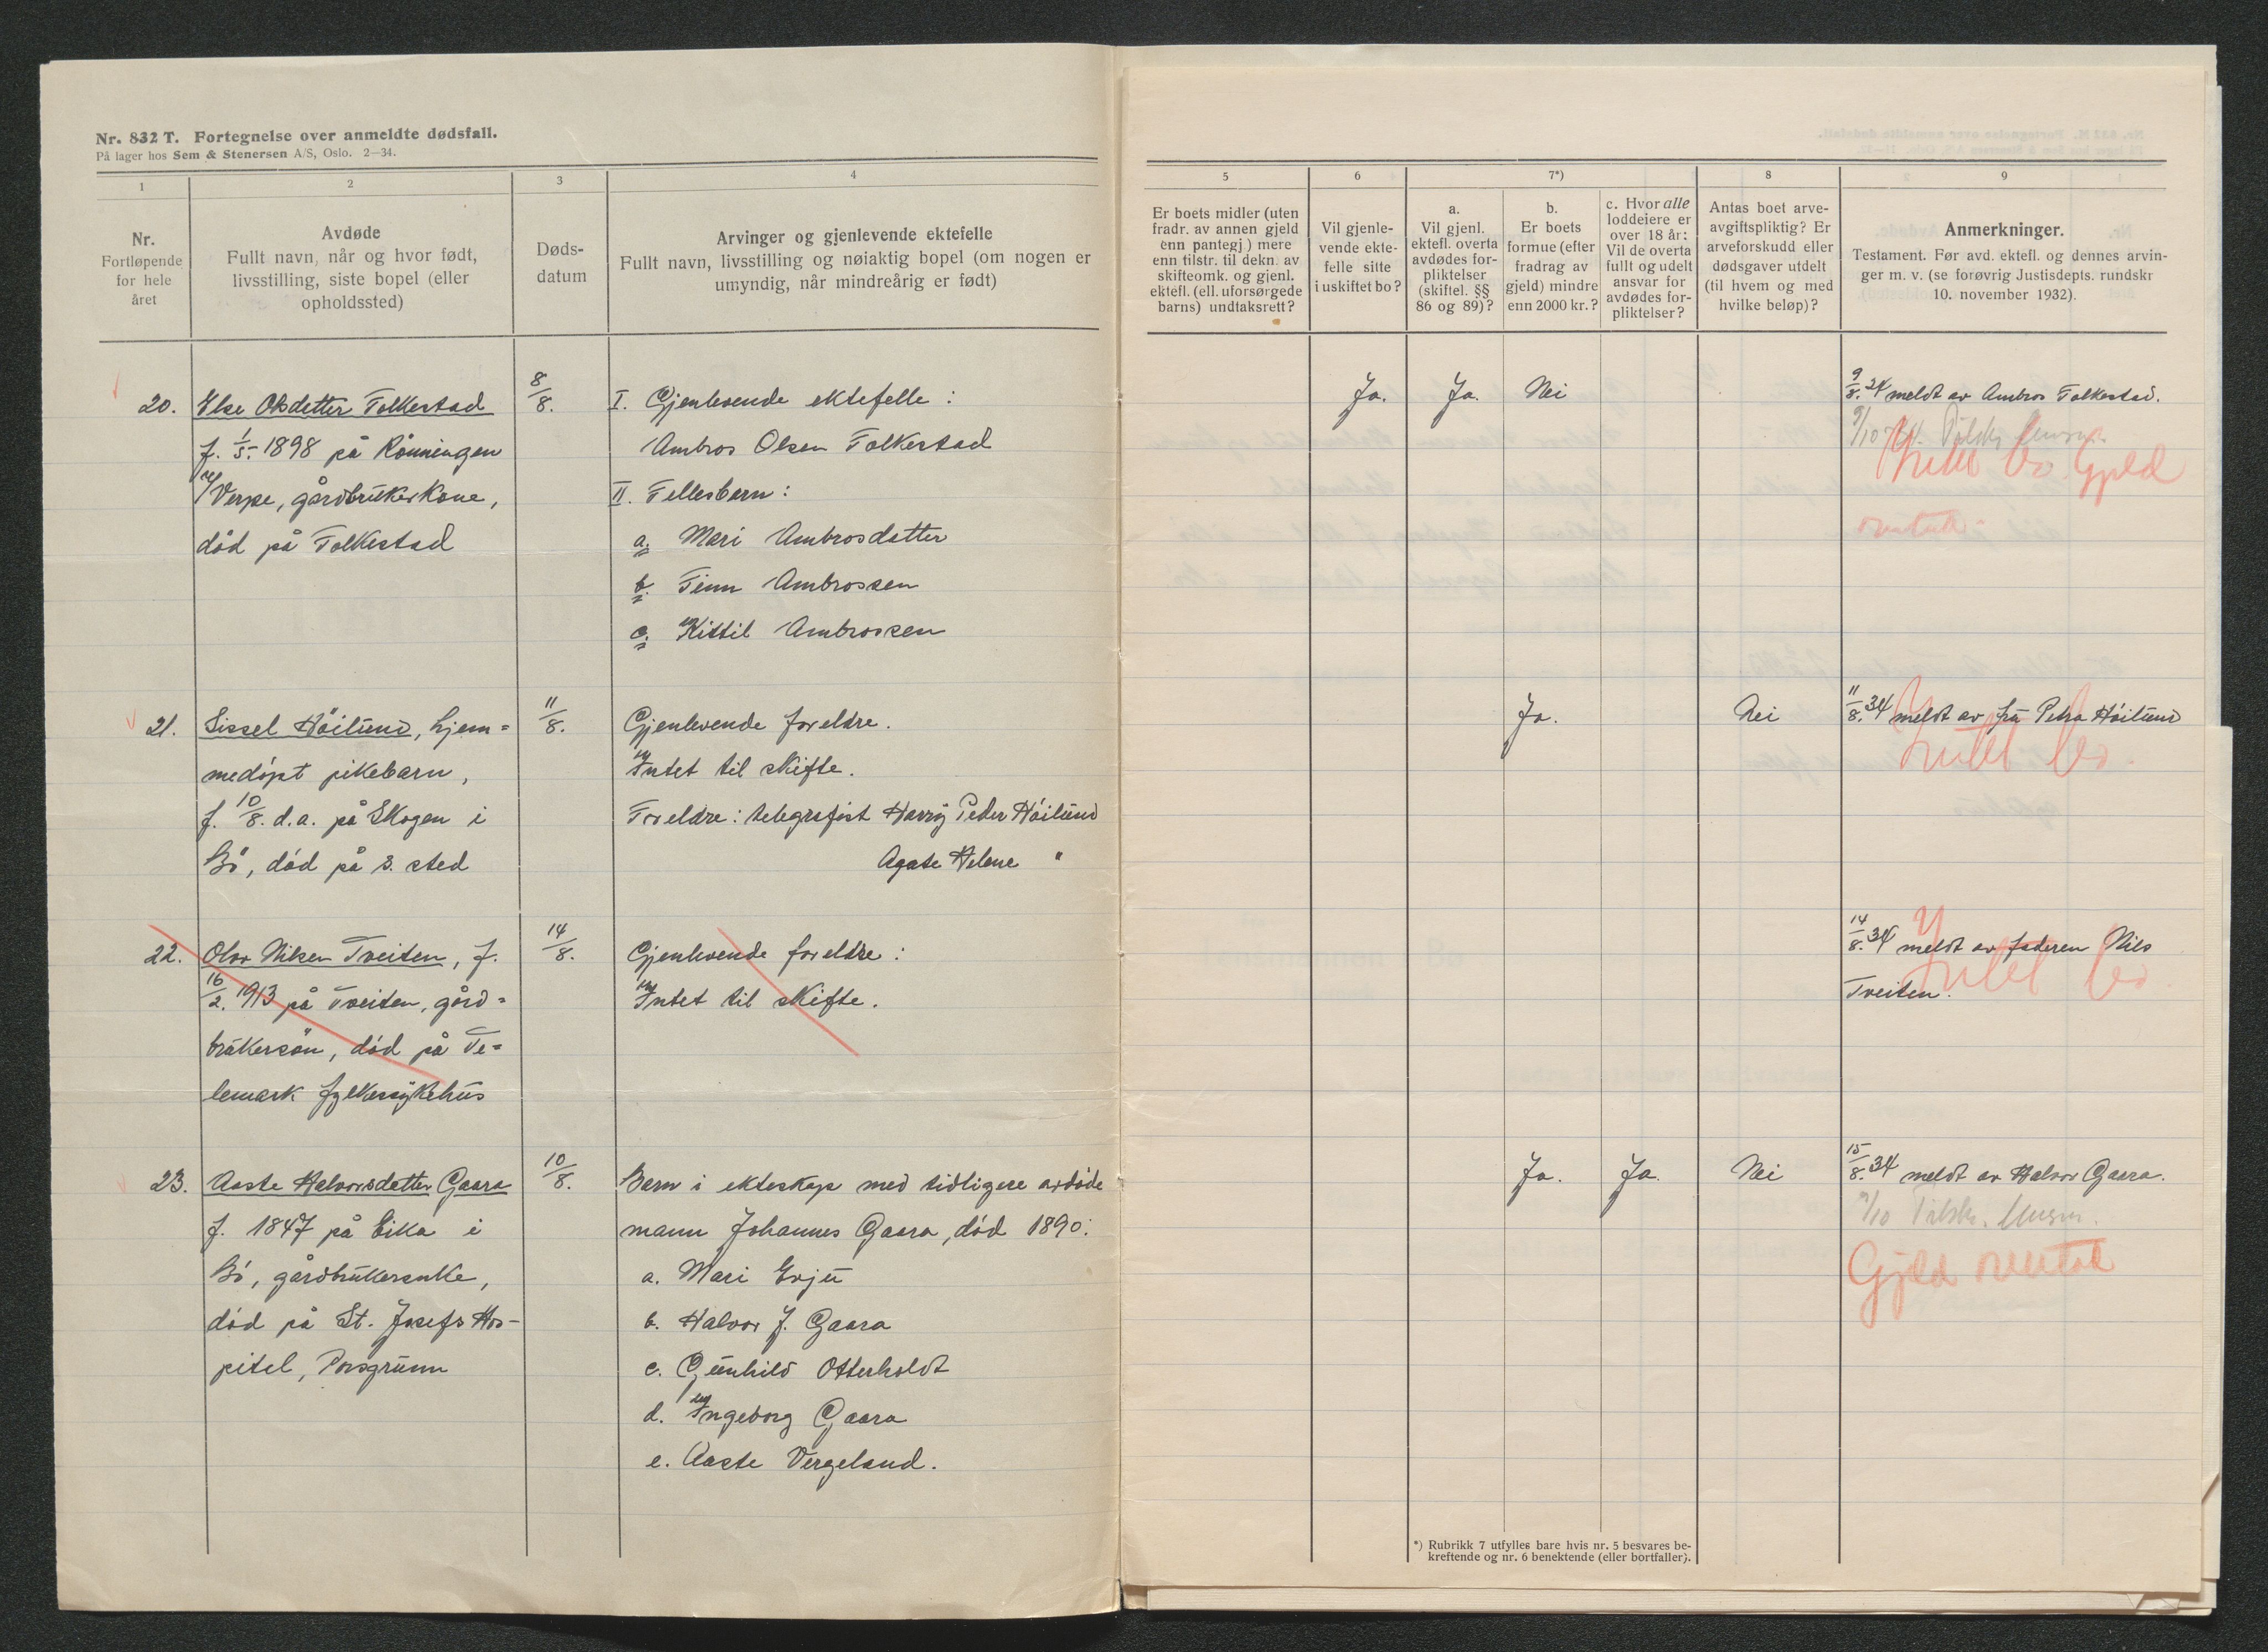 Nr. 832 T. Fortegnelse over anmeldte dødsfall.
På lager hos Sem & Stenersen A/S, Oslo. 2—34.
1
2
3
4
Nr.
Fortløpende
for hele
året
Avdøde
Fullt navn, når og hvor født,
livsstilling, siste bopel (eller
opholdssted)
Døds-
datum
Arvinger og gjenlevende ektefelle
Fullt navn, livsstilling og nøiaktig bopel (om nogen er
umyndig, når mindreårig er født)
5
6
7*)
8
9
Er boets midler (uten
fradr. av annen gjeld
enn pantegj.) mere
enn tilstr. til dekn. av
skifteomk. og gjenl.
ektefl. (ell. uforsørgede
barns) undtaksrett?
Vil gjenle-
vende ekte-
felle sitte
i uskiftet bo?
a.
Vil gjenl.
ektefl. overta
avdødes for-
pliktelser
(skiftel. §§
86 og 89)?
b.
Er boets
formue (efter
fradrag av
gjeld) mindre
enn 2000 kr.?
c. Hvor alle
loddeiere er
over 18 år:
Vil de overta
fullt og udelt
ansvar for
avdødes for-
pliktelser?
Antas boet arve-
avgiftspliktig? Er
arveforskudd eller
dødsgaver utdelt
(til hvem og med
hvilke beløp)?
Anmerkninger.
Testament. Før avd. ektefl. og dennes arvin-
ger m. v. (se forøvrig Justisdepts. rundskr
10. november 1932).
20.
Else Olsdetter Folkestad
f. 1/5. 1898 på Rönningen
u/Verpe, gårdbrukerkone,
död på Folkestad
8/8.
I. Gjenlevende ektefelle:
Ambros Olsen Folkestad
II. Fellesbarn:
a. Mari Ambrosdatter
b. Finn Ambrossen
c. Kittil Ambrossen
Ja.
Ja.
Nei
9/8. 34 meldt av Ambros Folkestad.
9/10
bo. Gjeld
overtatt
21.
Sissel Höilund, hjem=
medöpt pikebarn,
f. 10/8. d.a. på Skogen i
Bö, död på s. sted
11/8.
Gjenlevende foreldre.
Intet til skifte.
Foreldre: telegrafist Harry Peder Höilund
Agate Helene "
Ja.
Nei
11/8. 34 meldt av fru Petra Höilund
Intet bo.
22.
Olav Nilsen Tveiten, f.
16/2. 1913 på Tveiten, gård=
brukersön, död på Te=
lemark fylkessykehus
14/8.
Gjenlevende foreldre:
Intet til skifte.
14/8. 34 meldt av faderen Nils
Tveiten.
Intet bo
23.
Aaste Halvorsdatter Gaara
f. 1847 på Eika i
Bö, gårdbrukerenke,
död på St. Josefs Hos-
pitel, Porsgrunn
10/8.
Barn i ekteskap med tidligere avdöde
mann Johannes Gaara, död 1890:
a. Mari Evju
b. Halvor J. Gaara
c. Gunhild Otterholdt
d. Ingeborg Gaara
e. Aaste Vergeland.
Ja.
Ja.
Nei
15/8. 34 meldt av Halvor Gaara.
9/10
Gjeld overtat
*) Rubrikk 7 utfylles bare hvis nr. 5 besvares be-
kreftende og nr. 6 benektende (eller bortfaller).